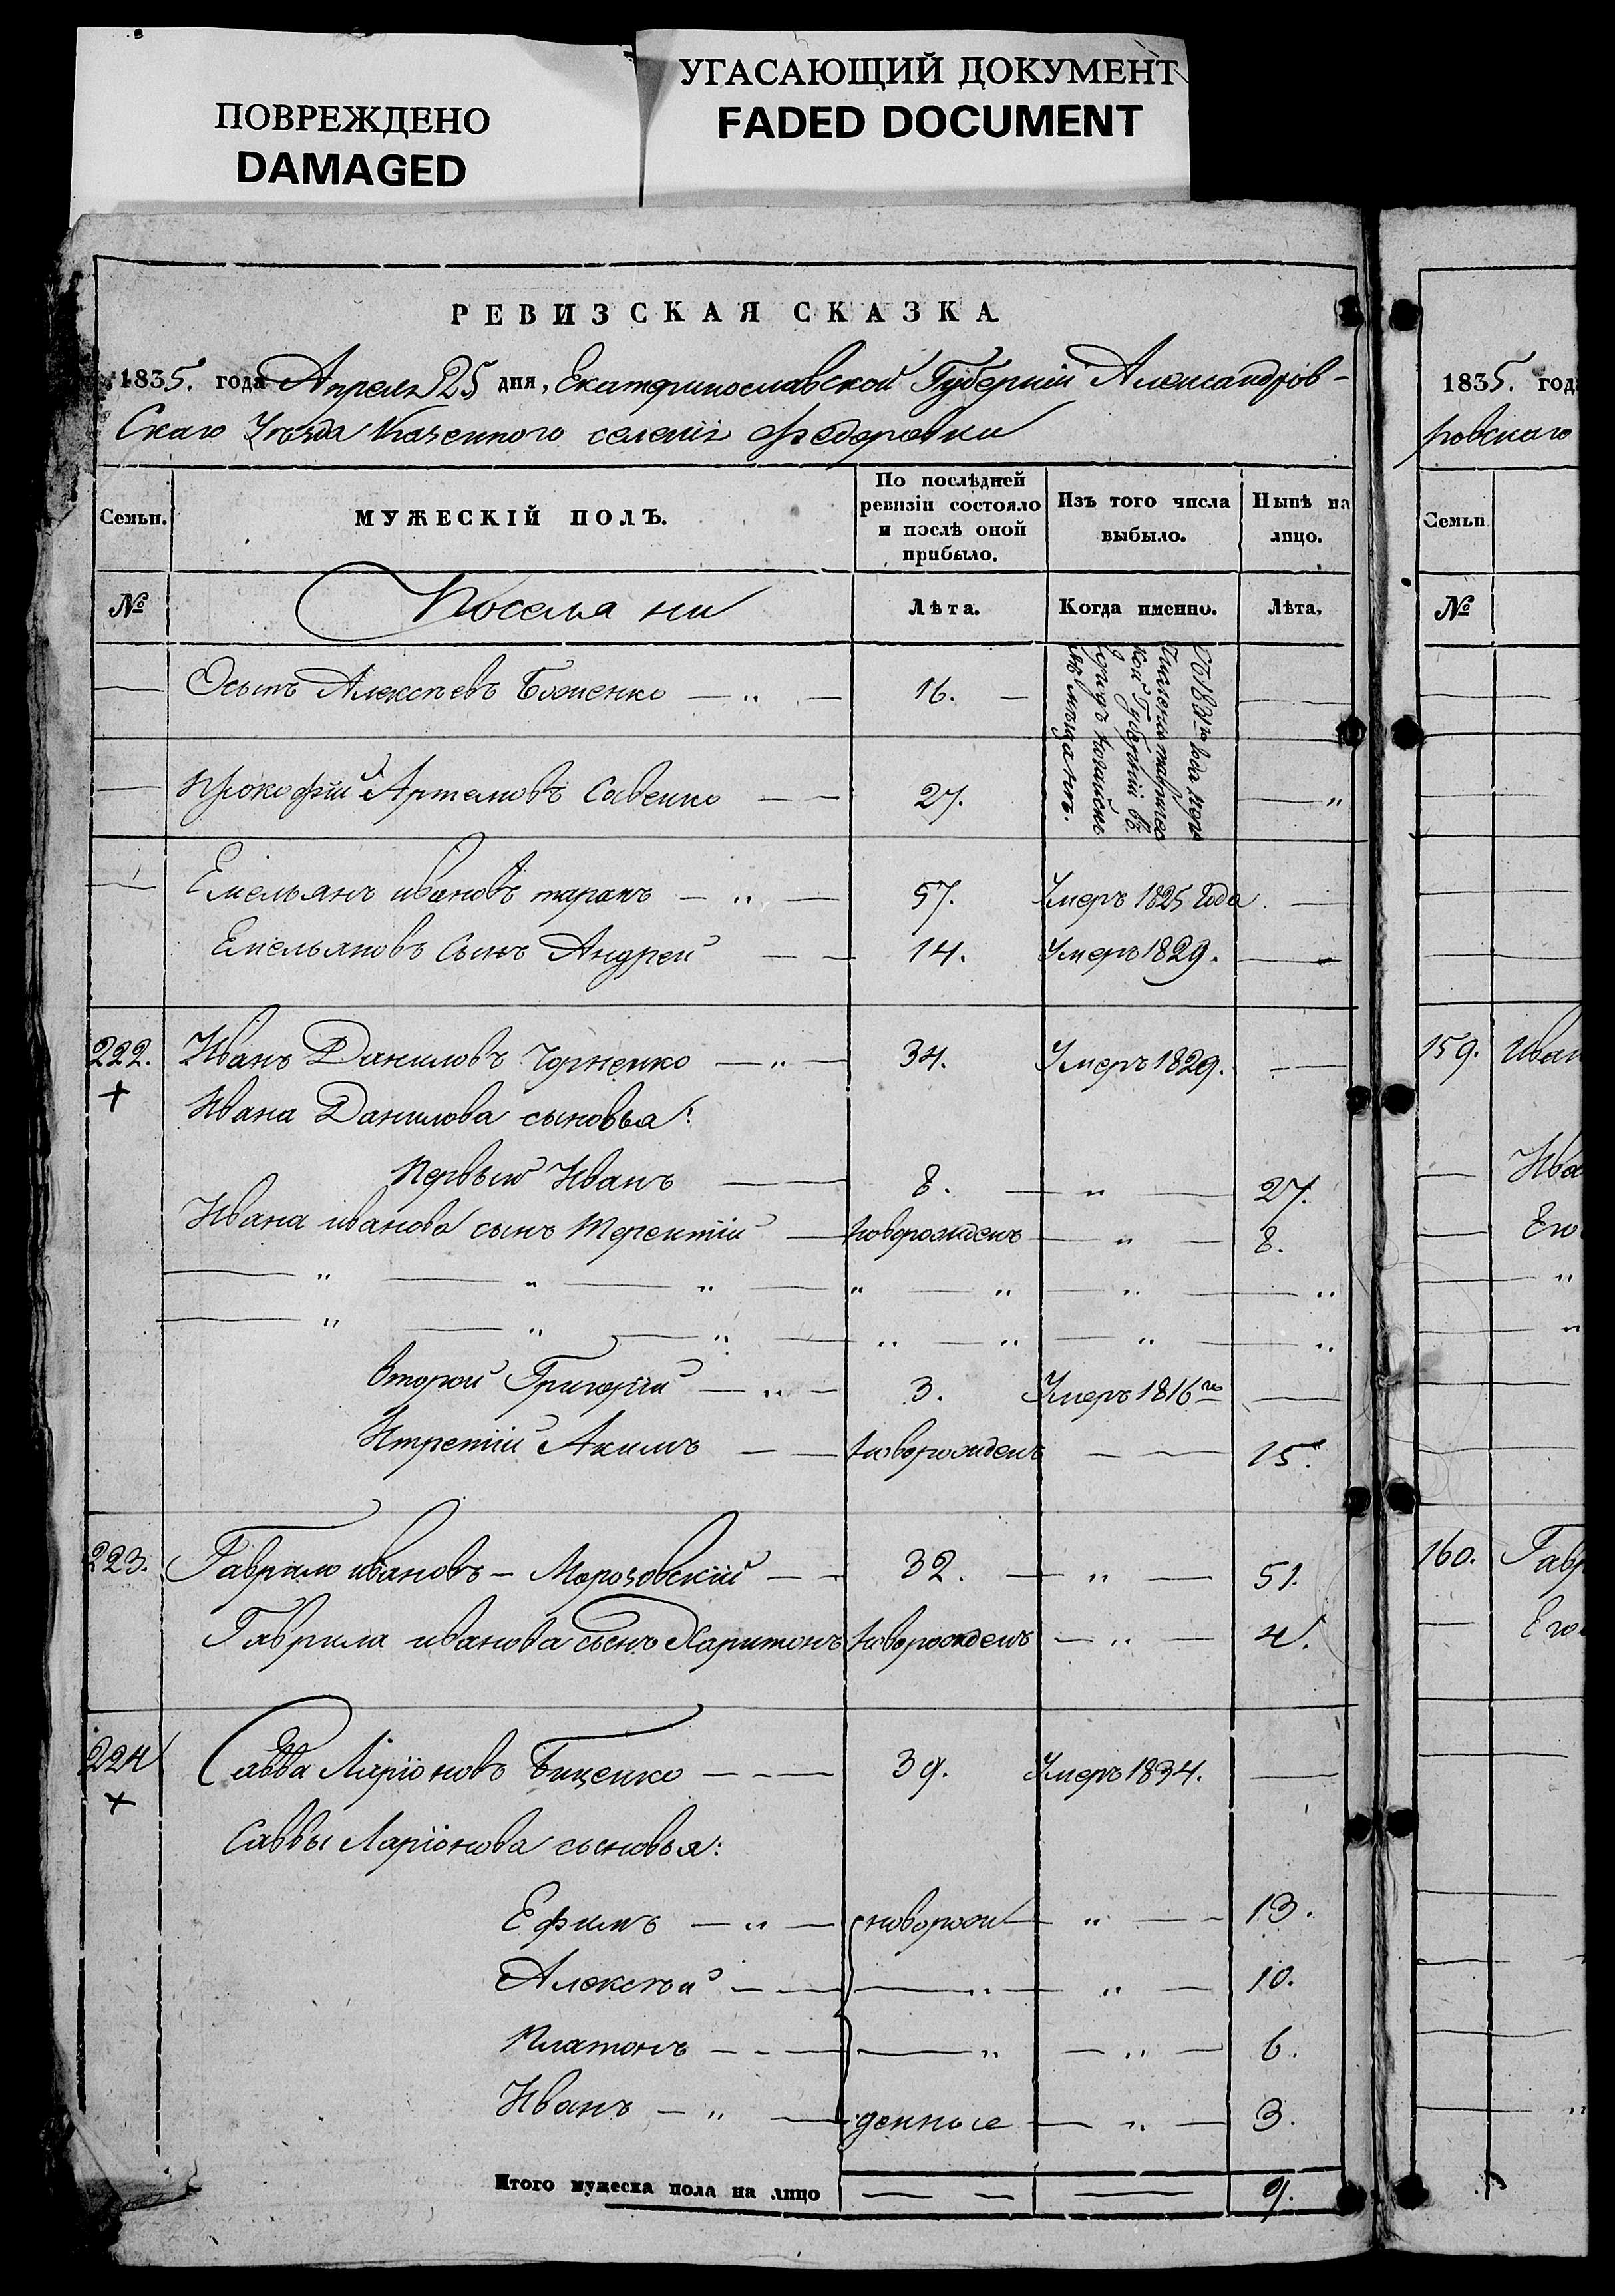 ПОВРЕЖДЕНО
DAMAGED
УГАСАЮЩИЙ ДОКУМЕНТ
FADED DOCUMENT
РЕВИЗСКАЯ СКАЗКА
1835. года Апреля 25 дня, Екатеринославской Губерніи Александров-
скаго Уѣзда Казенного селенія Федоровки
Семьи. МУЖЕСКІЙ ПОЛЪ. По послѣдней ревизіи состояло и послѣ оной прибыло. Изъ того числа выбыло. Нынѣ на лицо.
№ Поселяни Лѣта. Когда именно. Лѣта.
Осипъ Алексѣевъ Боженко — „ — 16. —
Прокофій Артемовъ Савенко — — 27. — „
Емельянъ ивановъ таранъ — „ — 57. Умеръ 1825 Года. —
Емельяновъ Сынъ Андрей — — 14. Умеръ 1829. —
222. Иванъ Даниловъ Чорненко — „ — 34. Умеръ 1829. — —
+ Ивана Данилова сыновья:
Первый Иванъ — 8. — „ — 27.
Ивана иванова сынъ Терентій — новорожденъ — „ — 8.
— „ — „ — „ — „ — „ — „ — „
— „ — „ — „ — „ — „ — „ — „
Второй Григорій — „ — 3. Умеръ 1816го —
Итретій Акимъ — — новорожденъ — — 15.
223. Гаврило ивановъ — Морозовскій — — 32. — „ — 51.
Гаврила иванова сынъ Харитонъ новорожденъ — „ — 4.
224 Савва Ларіоновъ Биценко — - — 39. Умеръ 1834. —
+ Саввы Ларіонова сыновья:
Ефимъ — „ — новорож — „ — 13.
Алексѣй — — — „ — „ — 10.
Платонъ — - — — „ — „ — 6.
Иванъ — „ — денные — „ — 3.
Итого мужеска пола на лицо — — — 9.
1835. год
ровскаго
Семьи
№
159. Иван
Ива
Его
160. Гавр
Его